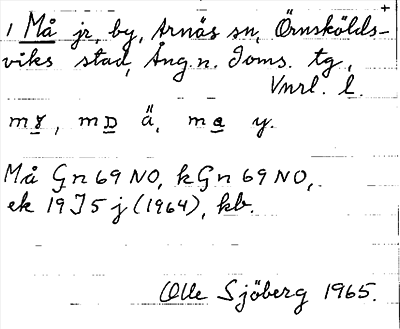 +
1 Må jr, by, Arnäs sn, Örnskölds-
viks stad, Ång.n. doms. tg,
Vnrl. l.
m, m ä, m y.
Må Gn 69 NO, kGn 69 NO,
ek 19 J 5 j (1964), kb.
Olle Sjöberg 1965.